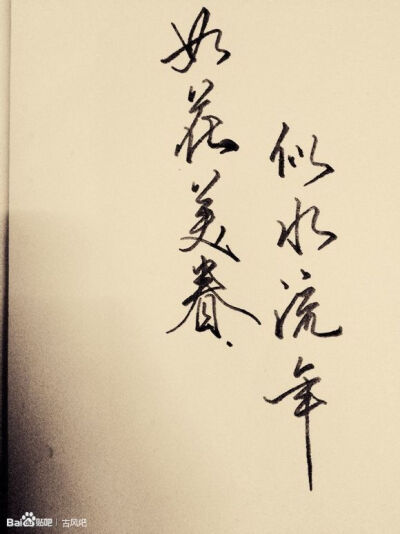 如花美眷.
似水流年
Bai贴吧 | 古风吧